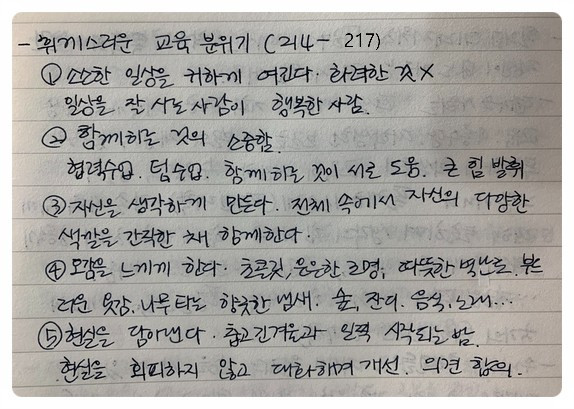 -휘게스러운 교육 분위기 (214 - 217)
① 소소한 일상을 귀하게 여긴다. 화려한 것 X
일상을 잘 사는 사람이 행복한 사람.
② 함께하는 것의 소중함.
협력수업. 팀수업. 함께 하는 것이 서로 도움. 큰 힘 발휘
③ 자신을 생각하게 만든다. 전체 속에서 자신의 다양한
색깔을 간직한 채 함께한다.
④ 오감을 느끼게 한다. 촛불빛, 은은한 조명, 따뜻한 벽난로, 부드
러운 옷감, 나무 타는 향긋한 냄새. 숲, 잔디. 음식, 노래...
⑤ 현실을 담아낸다. 춥고 긴 겨울과 일찍 시작되는 밤.
현실을 회피하지 않고 대화해여 개선. 의견 합의.